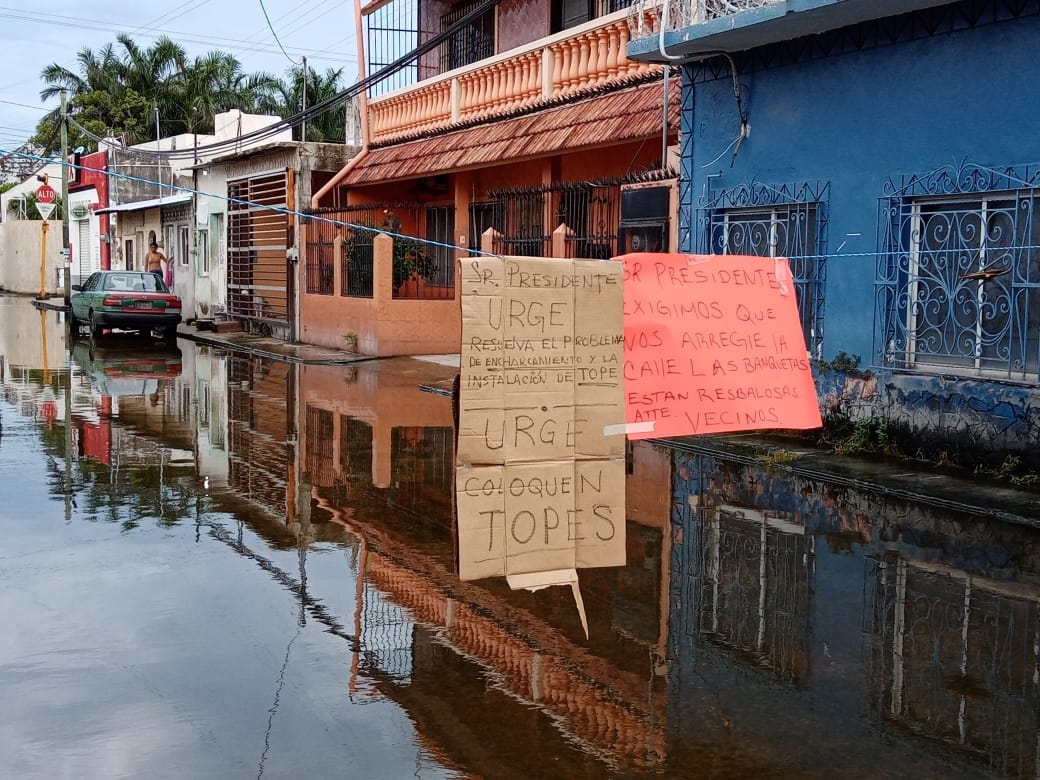 ALTO
SR. PRESIDENTE
URGE
RESUEVA EL PROBLEMA
DE ENCHARCAMIENTO Y LA
INSTALACIÓN DE TOPE
URGE
COLOQUEN
TOPES
SR PRESIDENTE
EXIGIMOS QUE
NOS ARREGLE LA
CALLE LAS BANQUETAS
ESTAN RESBALOSAS
ATTE. VECINOS